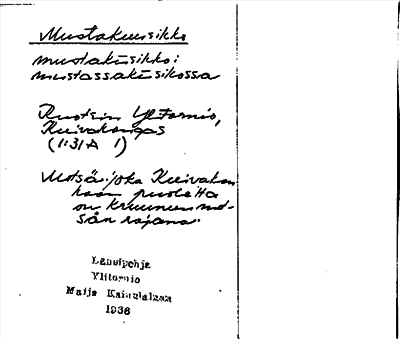 Mustakuusikko
mustakūsikko:
mustassakūsikossa
Ruotsin Ylitornio,
Kuivakangas
(1:31A 1)
Metsä, joka Kuivakan-
kaan puolelta
on kruununmet-
sän rajana.
Länsipohja
Ylitornio
Maija Kainulainen
1936